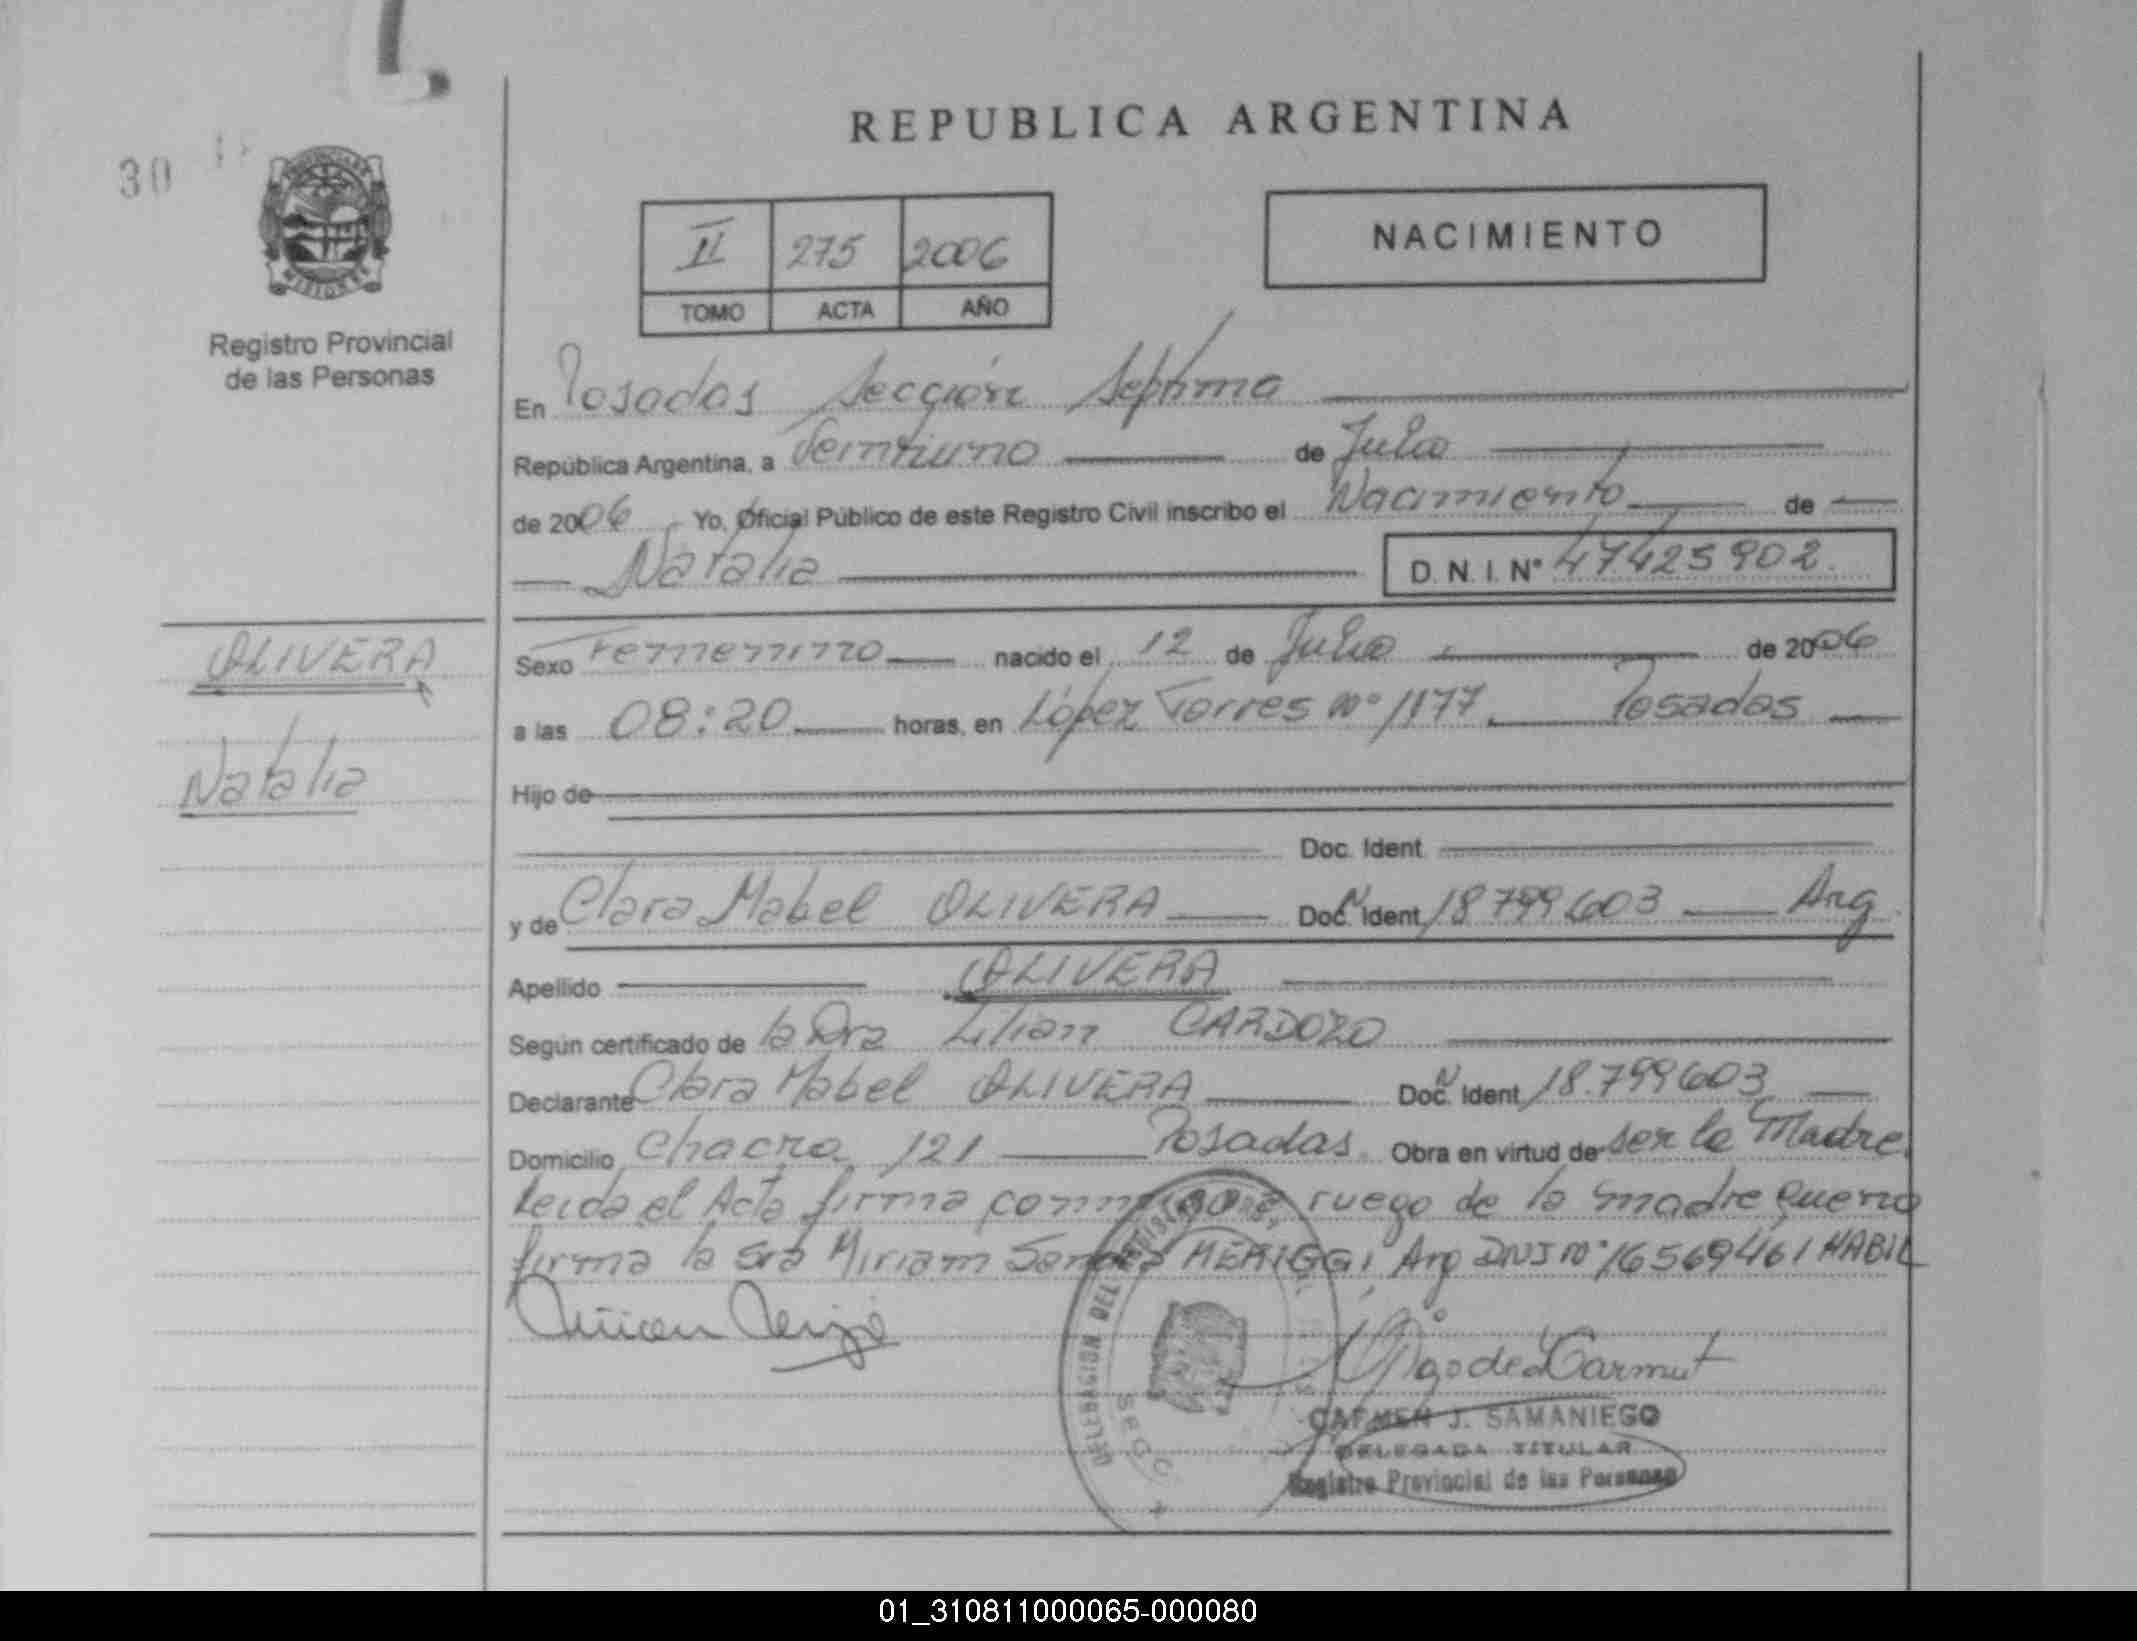 30
REPUBLICA ARGENTINA
II 275 2006
TOMO ACTA AÑO
NACIMIENTO
MISIONES
Registro Provincial
de las Personas
En Posadas Sección Séptima
República Argentina, a Veintiuno de Julio
de 2006 Yo, Oficial Público de este Registro Civil inscribo el Nacimiento de
Natalia D. N. I. Nº 47425902
OLIVERA
Natalia
Sexo Femenino nacido el 12 de Julio de 2006
a las 08:20 horas, en López Torres nº 1177 Posadas
Hijo de
Doc. Ident.
y de Clara Mabel OLIVERA Doc. Ident. 18799603 Arg
Apellido OLIVERA
Según certificado de la Dra Lilian CARDOZO
Declarante Clara Mabel OLIVERA Doc. Ident. 18.799603
Domicilio Chacra 121 Posadas Obra en virtud de ser la Madre
Leida el Acta firma conmigo a ruego de la madre que no
firma la Sra Miriam MERIGGI Arg DNI nº 16569461 HABIL
DELEGACION DEL
SECC
CARMEN J. SAMANIEGO
DELEGADA TITULAR
Registro Provincial de las Personas
01_310811000065-000080